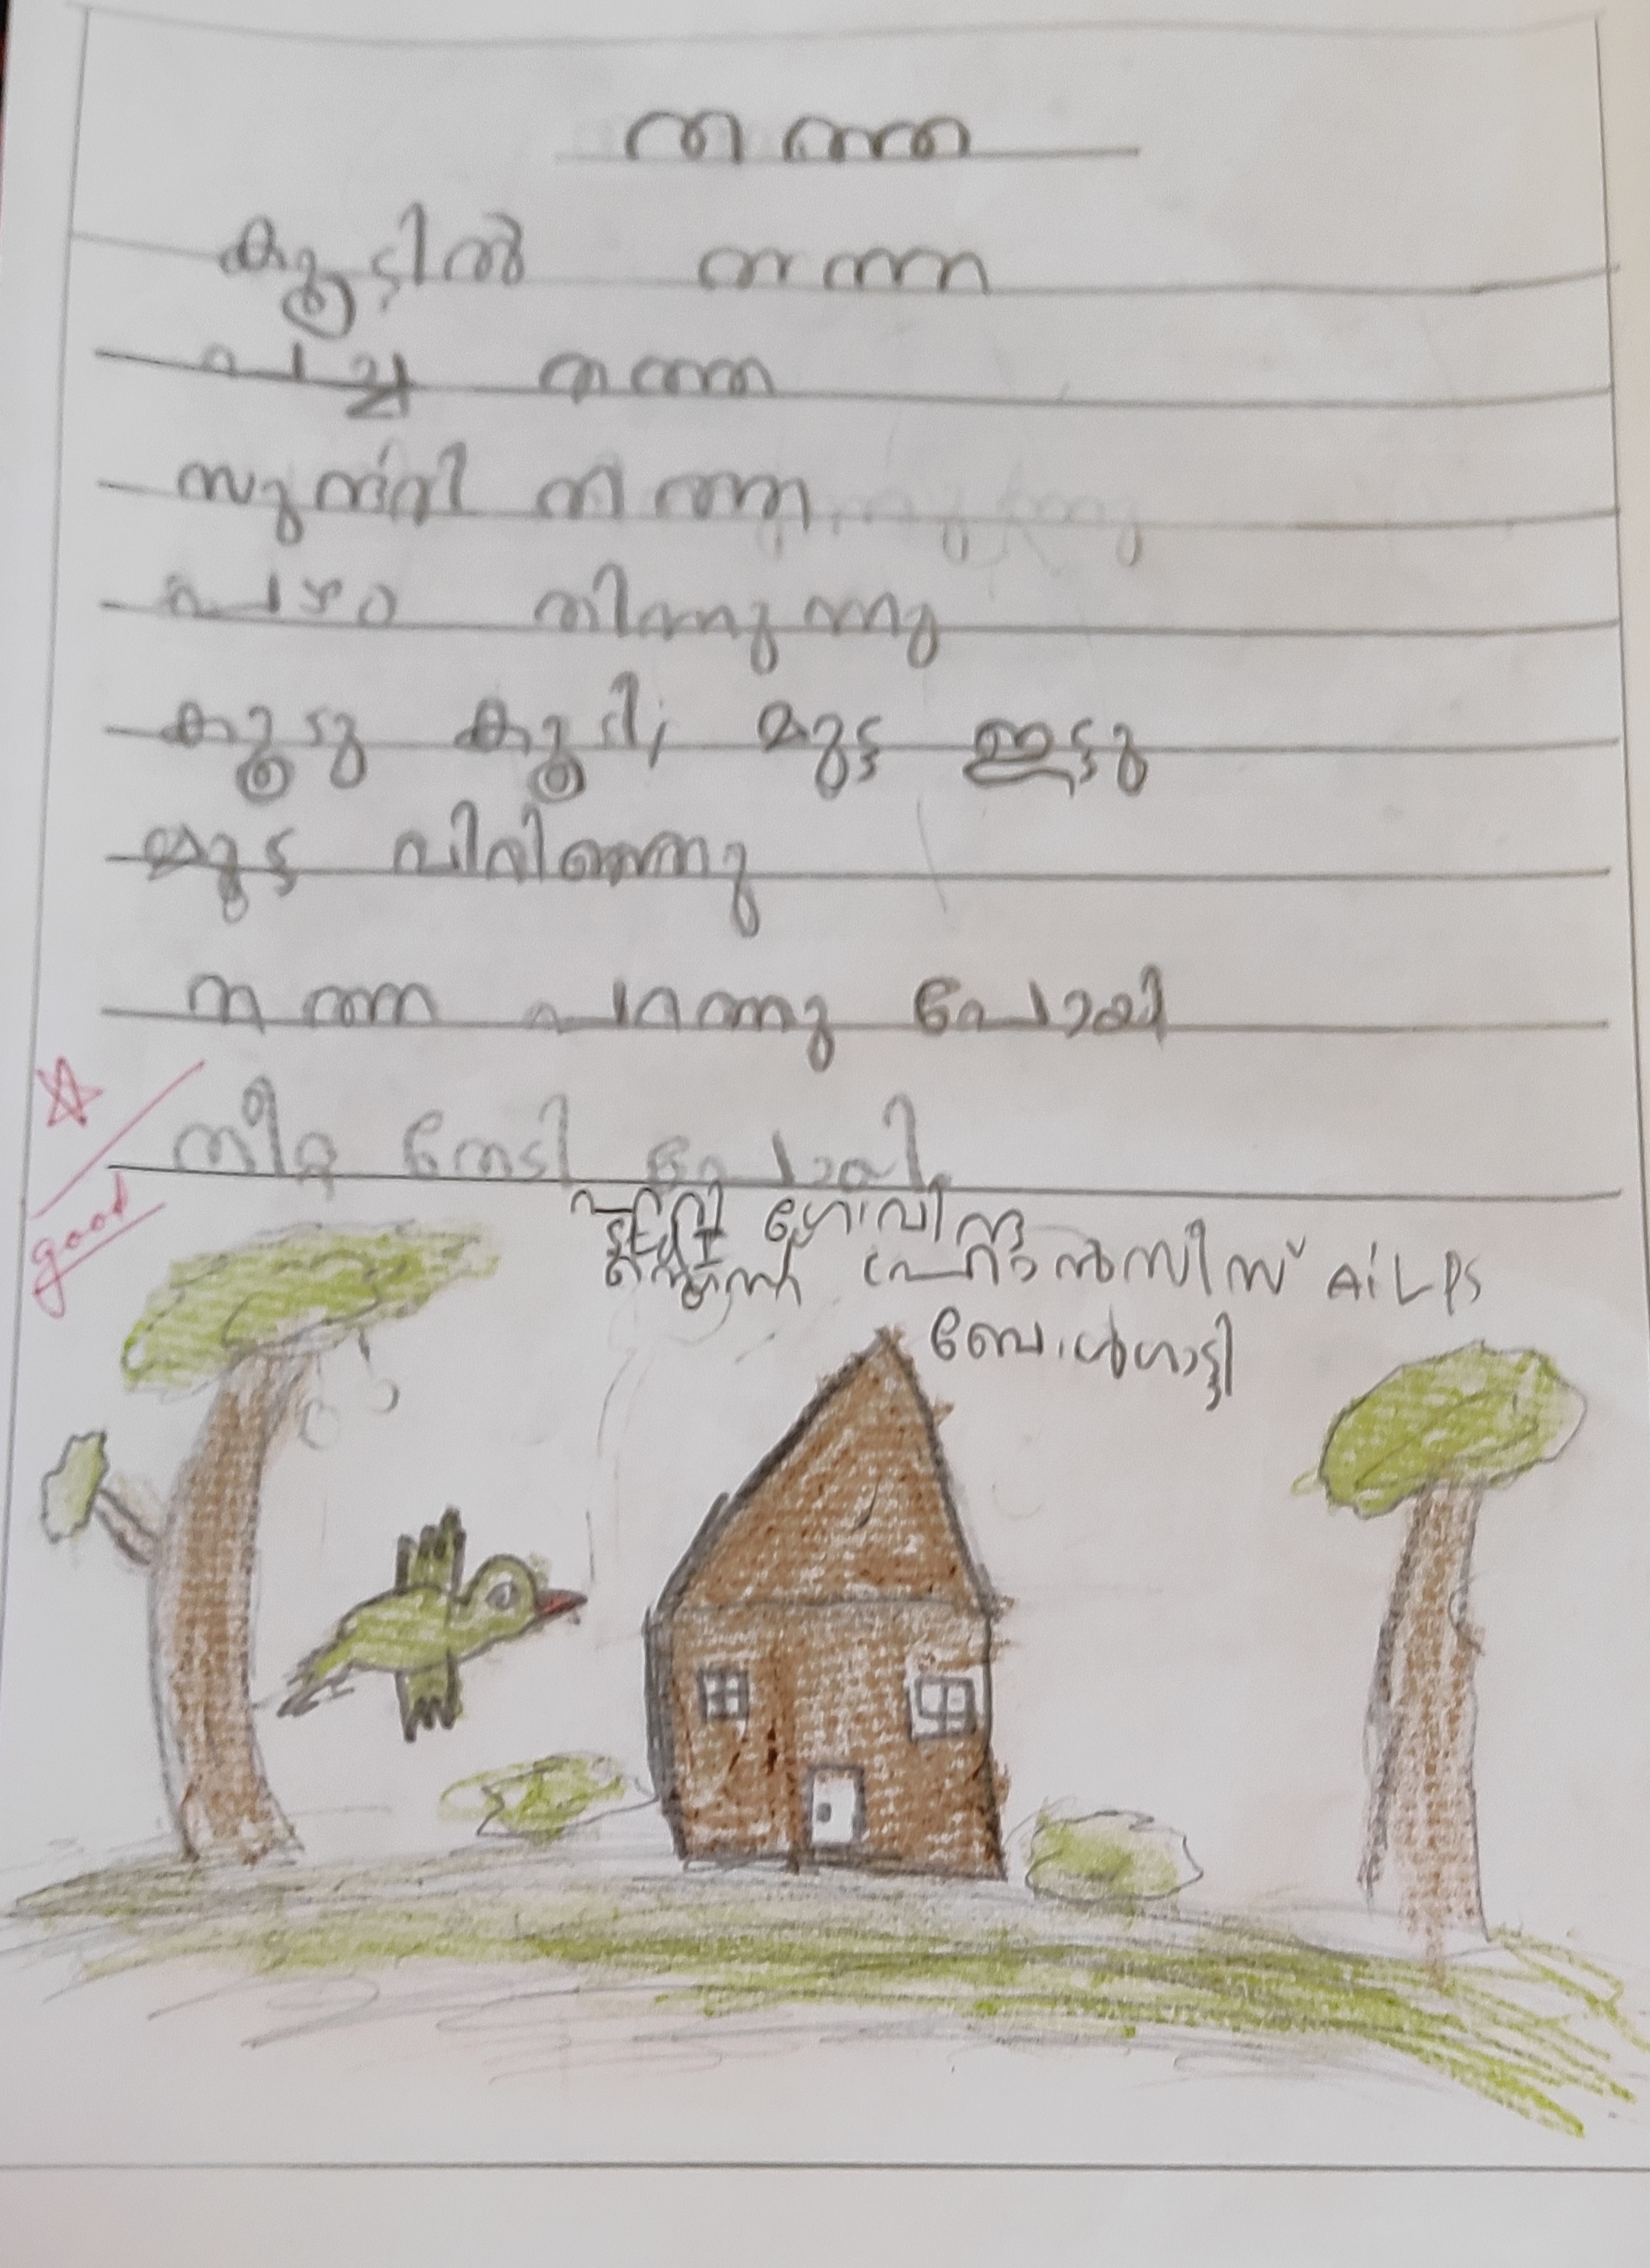 തത്ത
കൂട്ടിൽ തത്ത
പച്ച തത്ത
സുന്ദരി തത്ത
പഴം തിന്നുന്നു
കൂടു കൂടി, മുട്ട ഇട്ടു
മുട്ട വിരിഞ്ഞു
തത്ത പറന്നു പോയി
തീറ്റ തേടി പോയി.
good
ഗോവിന്ദ്
സെന്റ് ഫ്രാൻസീസ് AiLPS
ബോൾഗാട്ടി